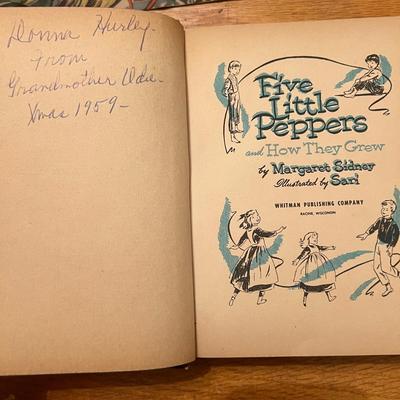 Donna Hurley
From
Grandmother Odie
Xmas 1959-
Five
Little
Peppers
and How They Grew
by Margaret Sidney
Illustrated by Sari
WHITMAN PUBLISHING COMPANY
RACINE, WISCONSIN